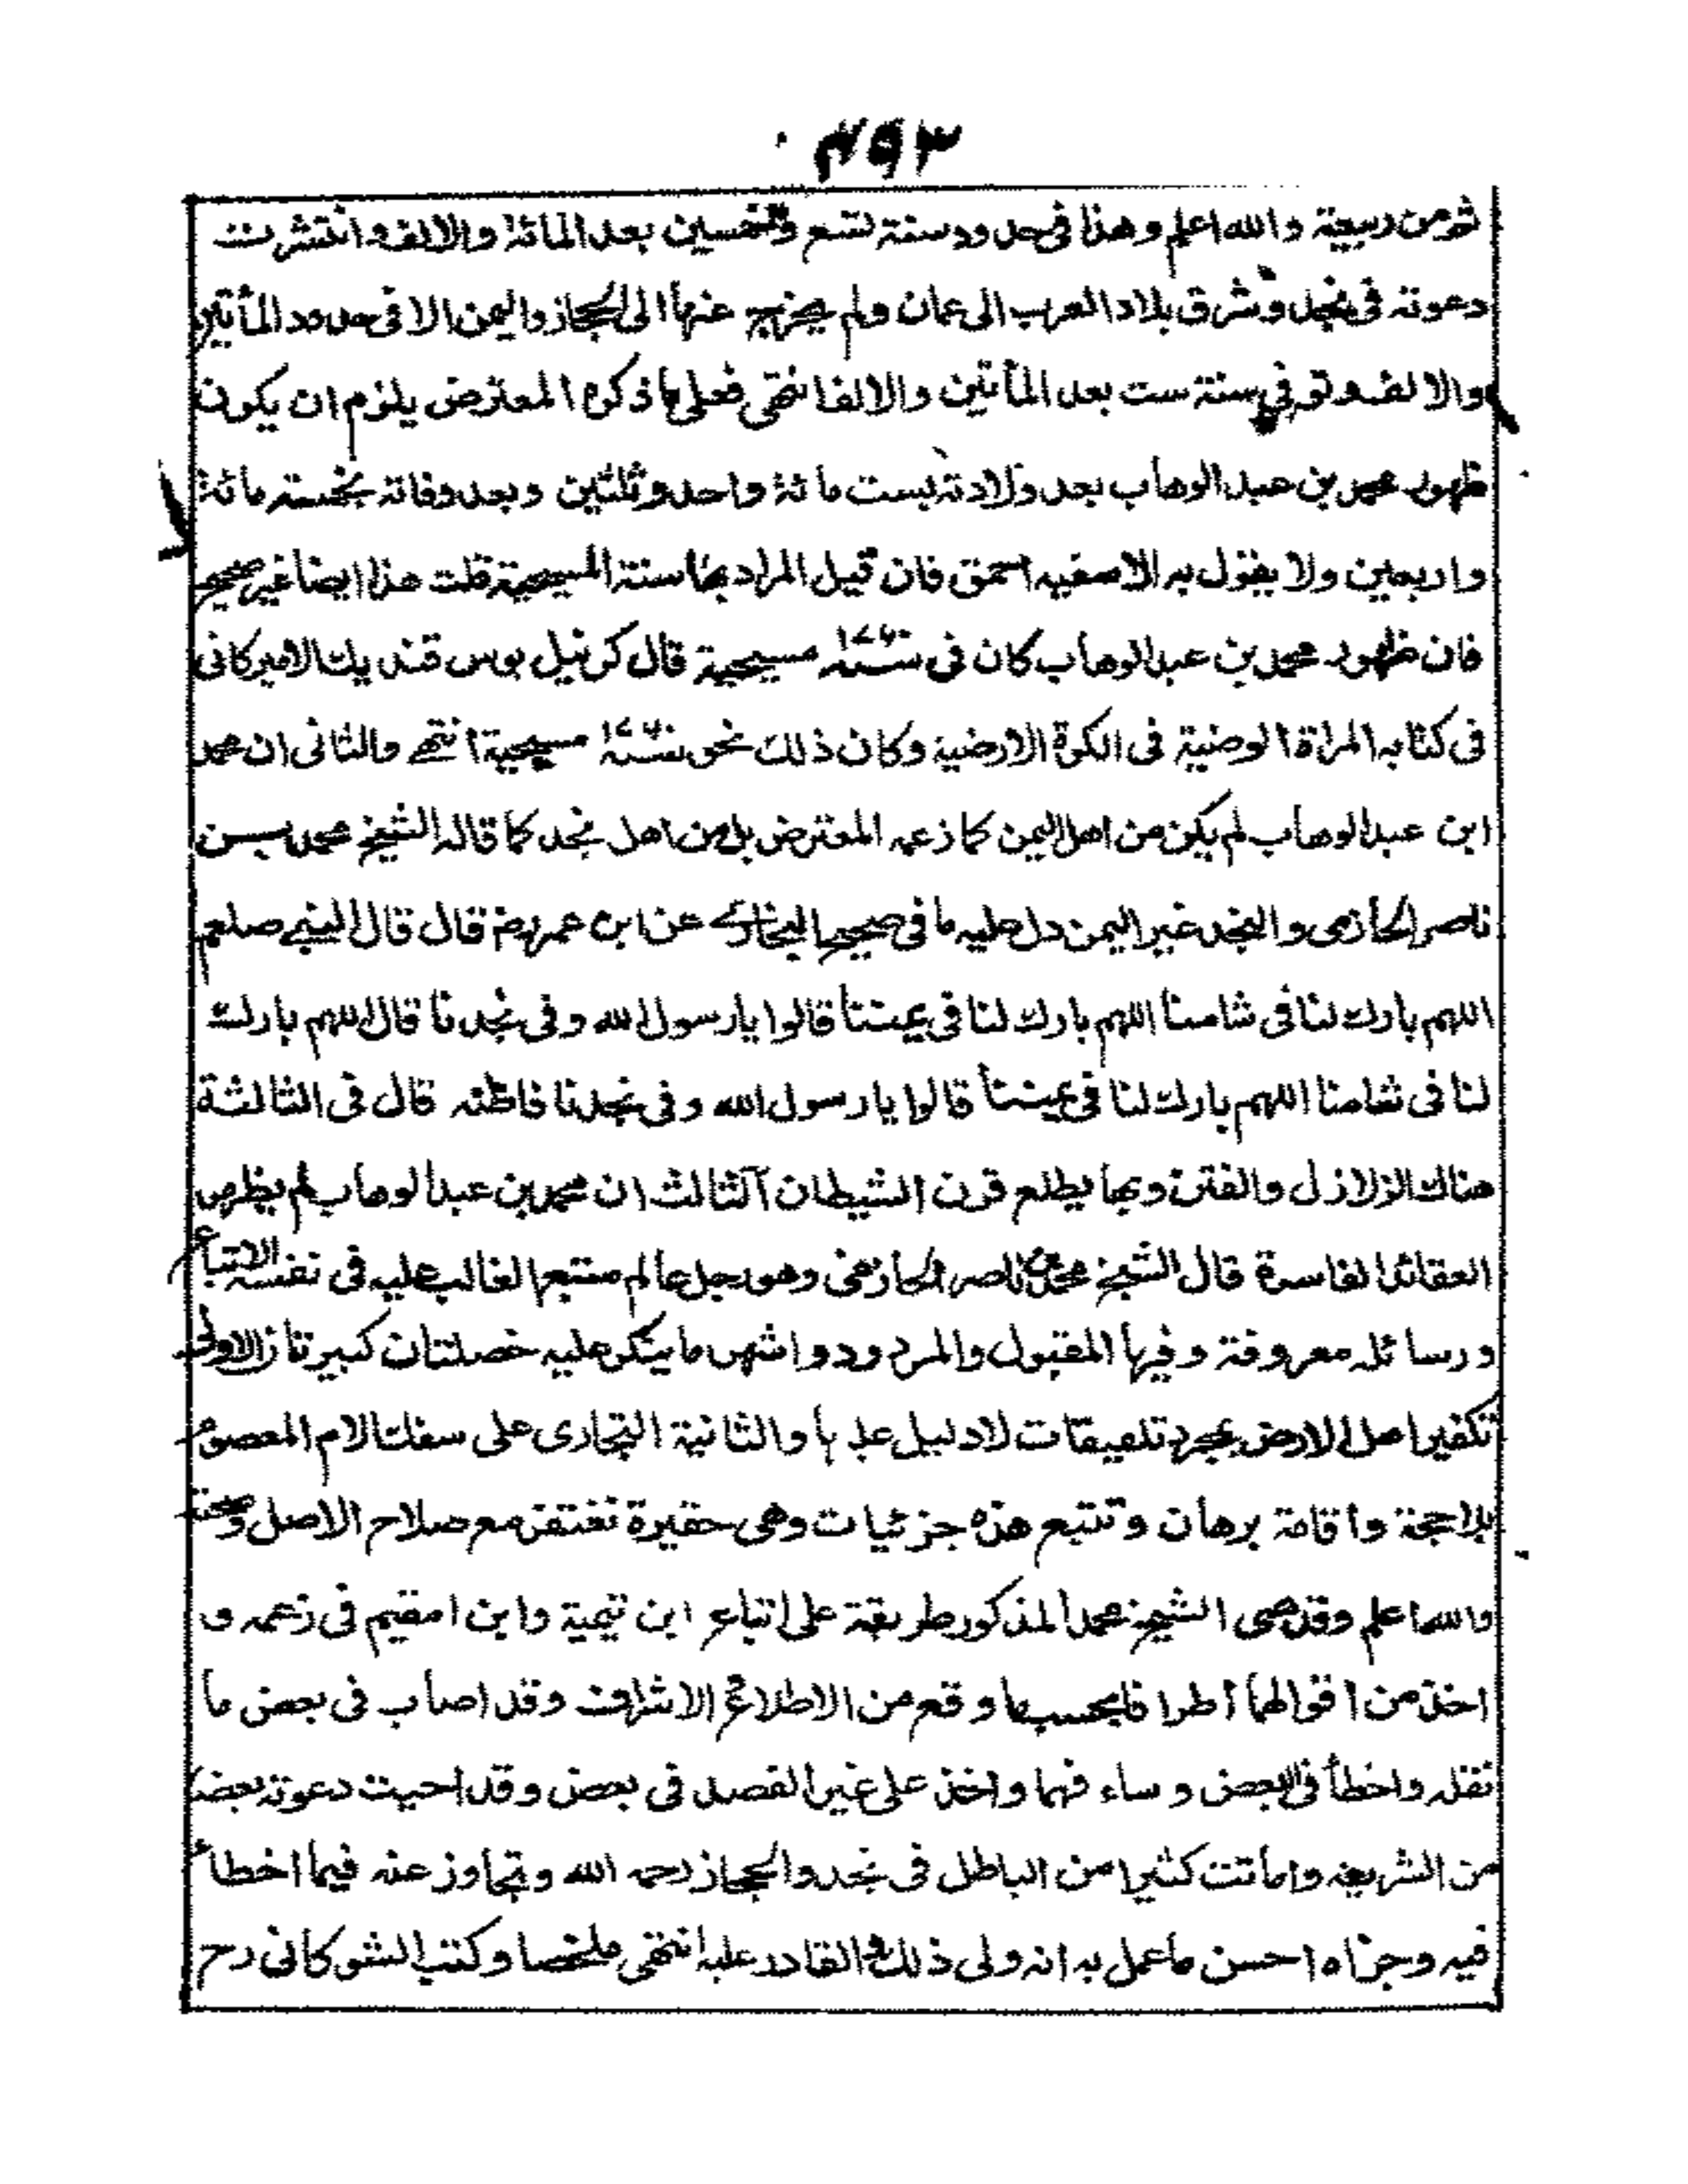 ٤٩٣
ثم من ربيعة والله اعلم وهذا فى حدود سنة تسع وخمسين بعد المائة والالف وانتشرت
دعوته فى نجد وشرق بلاد العرب الى عمان ولم يخرج عنها الى الحجاز واليمن الا فى حدود المأتين
والالف وتوفى سنة ست بعد المأتين والالف انتهى فعلى ما ذكره المعترض يلزم ان يكون
ظهور محمد بن عبد الوهاب بعد ولادته بست مائة واحد وثلثين وبعد وفاته بخمسة مائة
واربعين ولا يقول به الا سفيه احمق فان قيل المراد بها سنة المسيحية قلت هذا ايضا غير صحيح
فان ظهور محمد بن عبد الوهاب كان فى سنة ١٧٦٠ مسيحية قال كرنيل بوس فنديك الاميركانى
فى كتابه المراة الوضية فى الكرة الارضية وكان ذلك نحو سنة ١٧٦٠ مسيحية انتهى والثانى ان محمد
ابن عبد الوهاب لم يكن من اهل اليمن كما زعمه المعترض بل من اهل نجد كما قاله الشيخ محمد بن
ناصر الحازمى والنجد غير اليمن دل عليه ما فى صحيح البخارى عن ابن عمر رض قال قال النبى صلعم
اللهم بارك لنا فى شامنا اللهم بارك لنا فى يمننا قالوا يا رسول الله وفى نجدنا قال اللهم بارك
لنا فى شامنا اللهم بارك لنا فى يمننا قالوا يا رسول الله وفى نجدنا فاظنه قال فى الثالثة
هناك الزلازل والفتن وبها يطلع قرن الشيطان الثالث ان محمد بن عبد الوهاب لم يظهر من
العقائد الفاسدة قال الشيخ محمد بن ناصر الحازمى وهو رجل عالم متبع الغالب عليه فى نفسه الاتباع
ورسائله معروفة وفيها المقبول والمردود واشهر ما ينكر عليه خصلتان كبيرتان الاولى
تكفير اهل الارض بمجرد تلفيقات لا دليل عليها والثانية التجارى على سفك الدم المعصوم
بلا حجة واقامة برهان وتتبع هذه جزئيات وهى حقيرة تغتفر مع صلاح الاصل وصحته
والله اعلم وقد الشيخ محمد المذكور طريقة على اتباع ابن تيمية وابن القيم فى زعمه و
اخذ من اقوالهما اطرافا بحسب ما وقع من الاطلاع الاشراف وقد اصاب فى بعض ما
نقله واخطأ فى البعض وساء فهما واخذ على غير القصد فى بعض وقد احيت دعوته بعضا
من الشريعة واماتت كثيرا من الباطل فى نجد والحجاز رحمه الله وتجاوز عنه فيما اخطأ
فيه وجزاه احسن ما عمل به انه ولى ذلك والقادر عليه انتهى ملخصا وكتب الشوكانى رح